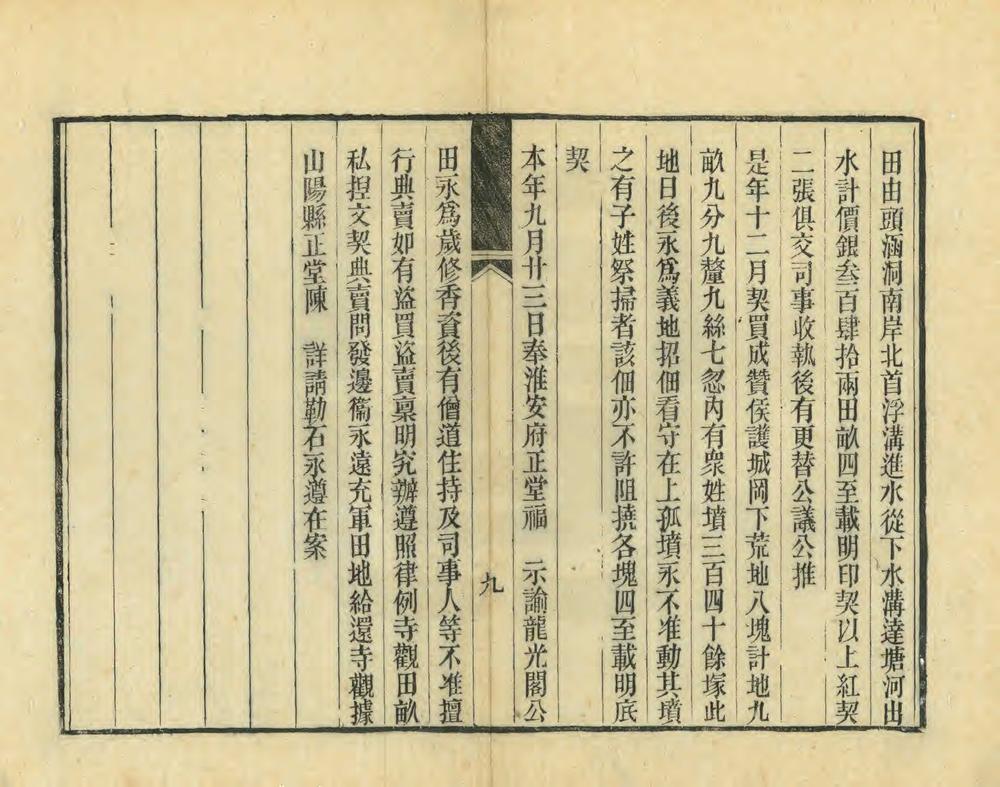 田由頭涵洞南岸北首浮溝進水從下水溝達塘河出
水計價銀叁百肆拾兩田畝四至載明印契以上紅契
二張俱交司事收執後有更替公議公推
是年十二月契買成贊侯護城岡下荒地八塊計地九
畝九分九釐九絲七忽內有衆姓墳三百四十餘塚此
地日後永爲義地招佃看守在上孤墳永不准動其墳
之有子姓祭掃者該佃亦不許阻撓各塊四至載明底
契
本年九月廿三日奉淮安府正堂福　示諭龍光閣公
九
田永爲歲修香資後有僧道住持及司事人等不准擅
行典賣如有盜買盜賣稟明究辦遵照律例寺觀田畝
私捏文契典賣問發邊衞永遠充軍田地給還寺觀據
山陽縣正堂陳　詳請勒石永遵在案